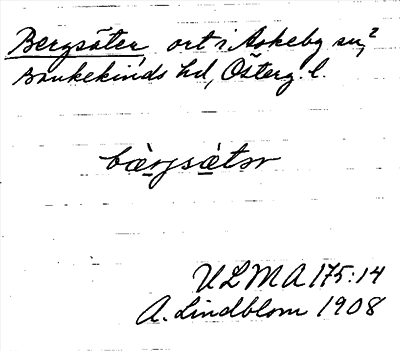 Bergsäter, ort i Askeby sn,?
Bankekinds hd, Österg. l.
bærjsætər
ULMA 175:14
A. Lindblom 1908